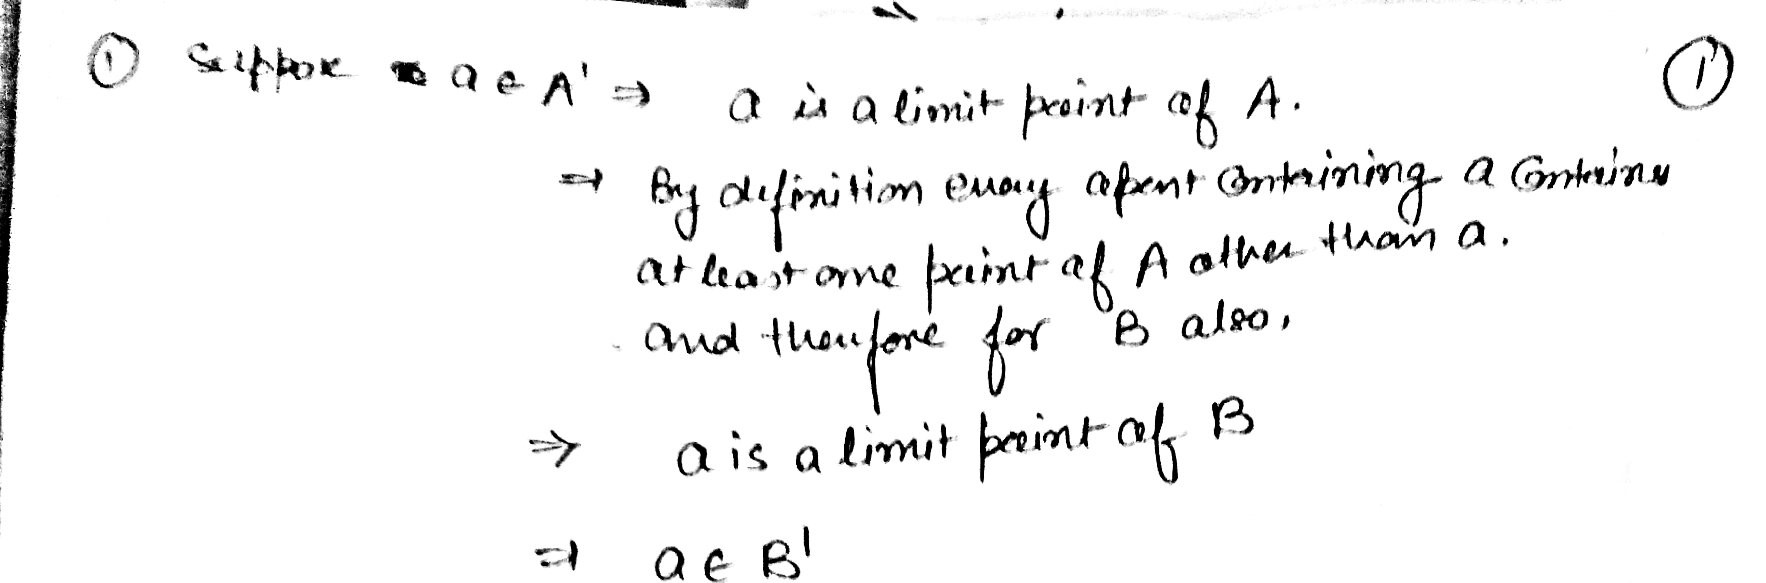 ① Suppose a ∈ A' ⇒ a is a limit point of A. ①
⇒ By definition every open containing a contains
at least one point of A other than a.
and therefore for B also,
⇒ a is a limit point of B
⇒ a ∈ B'